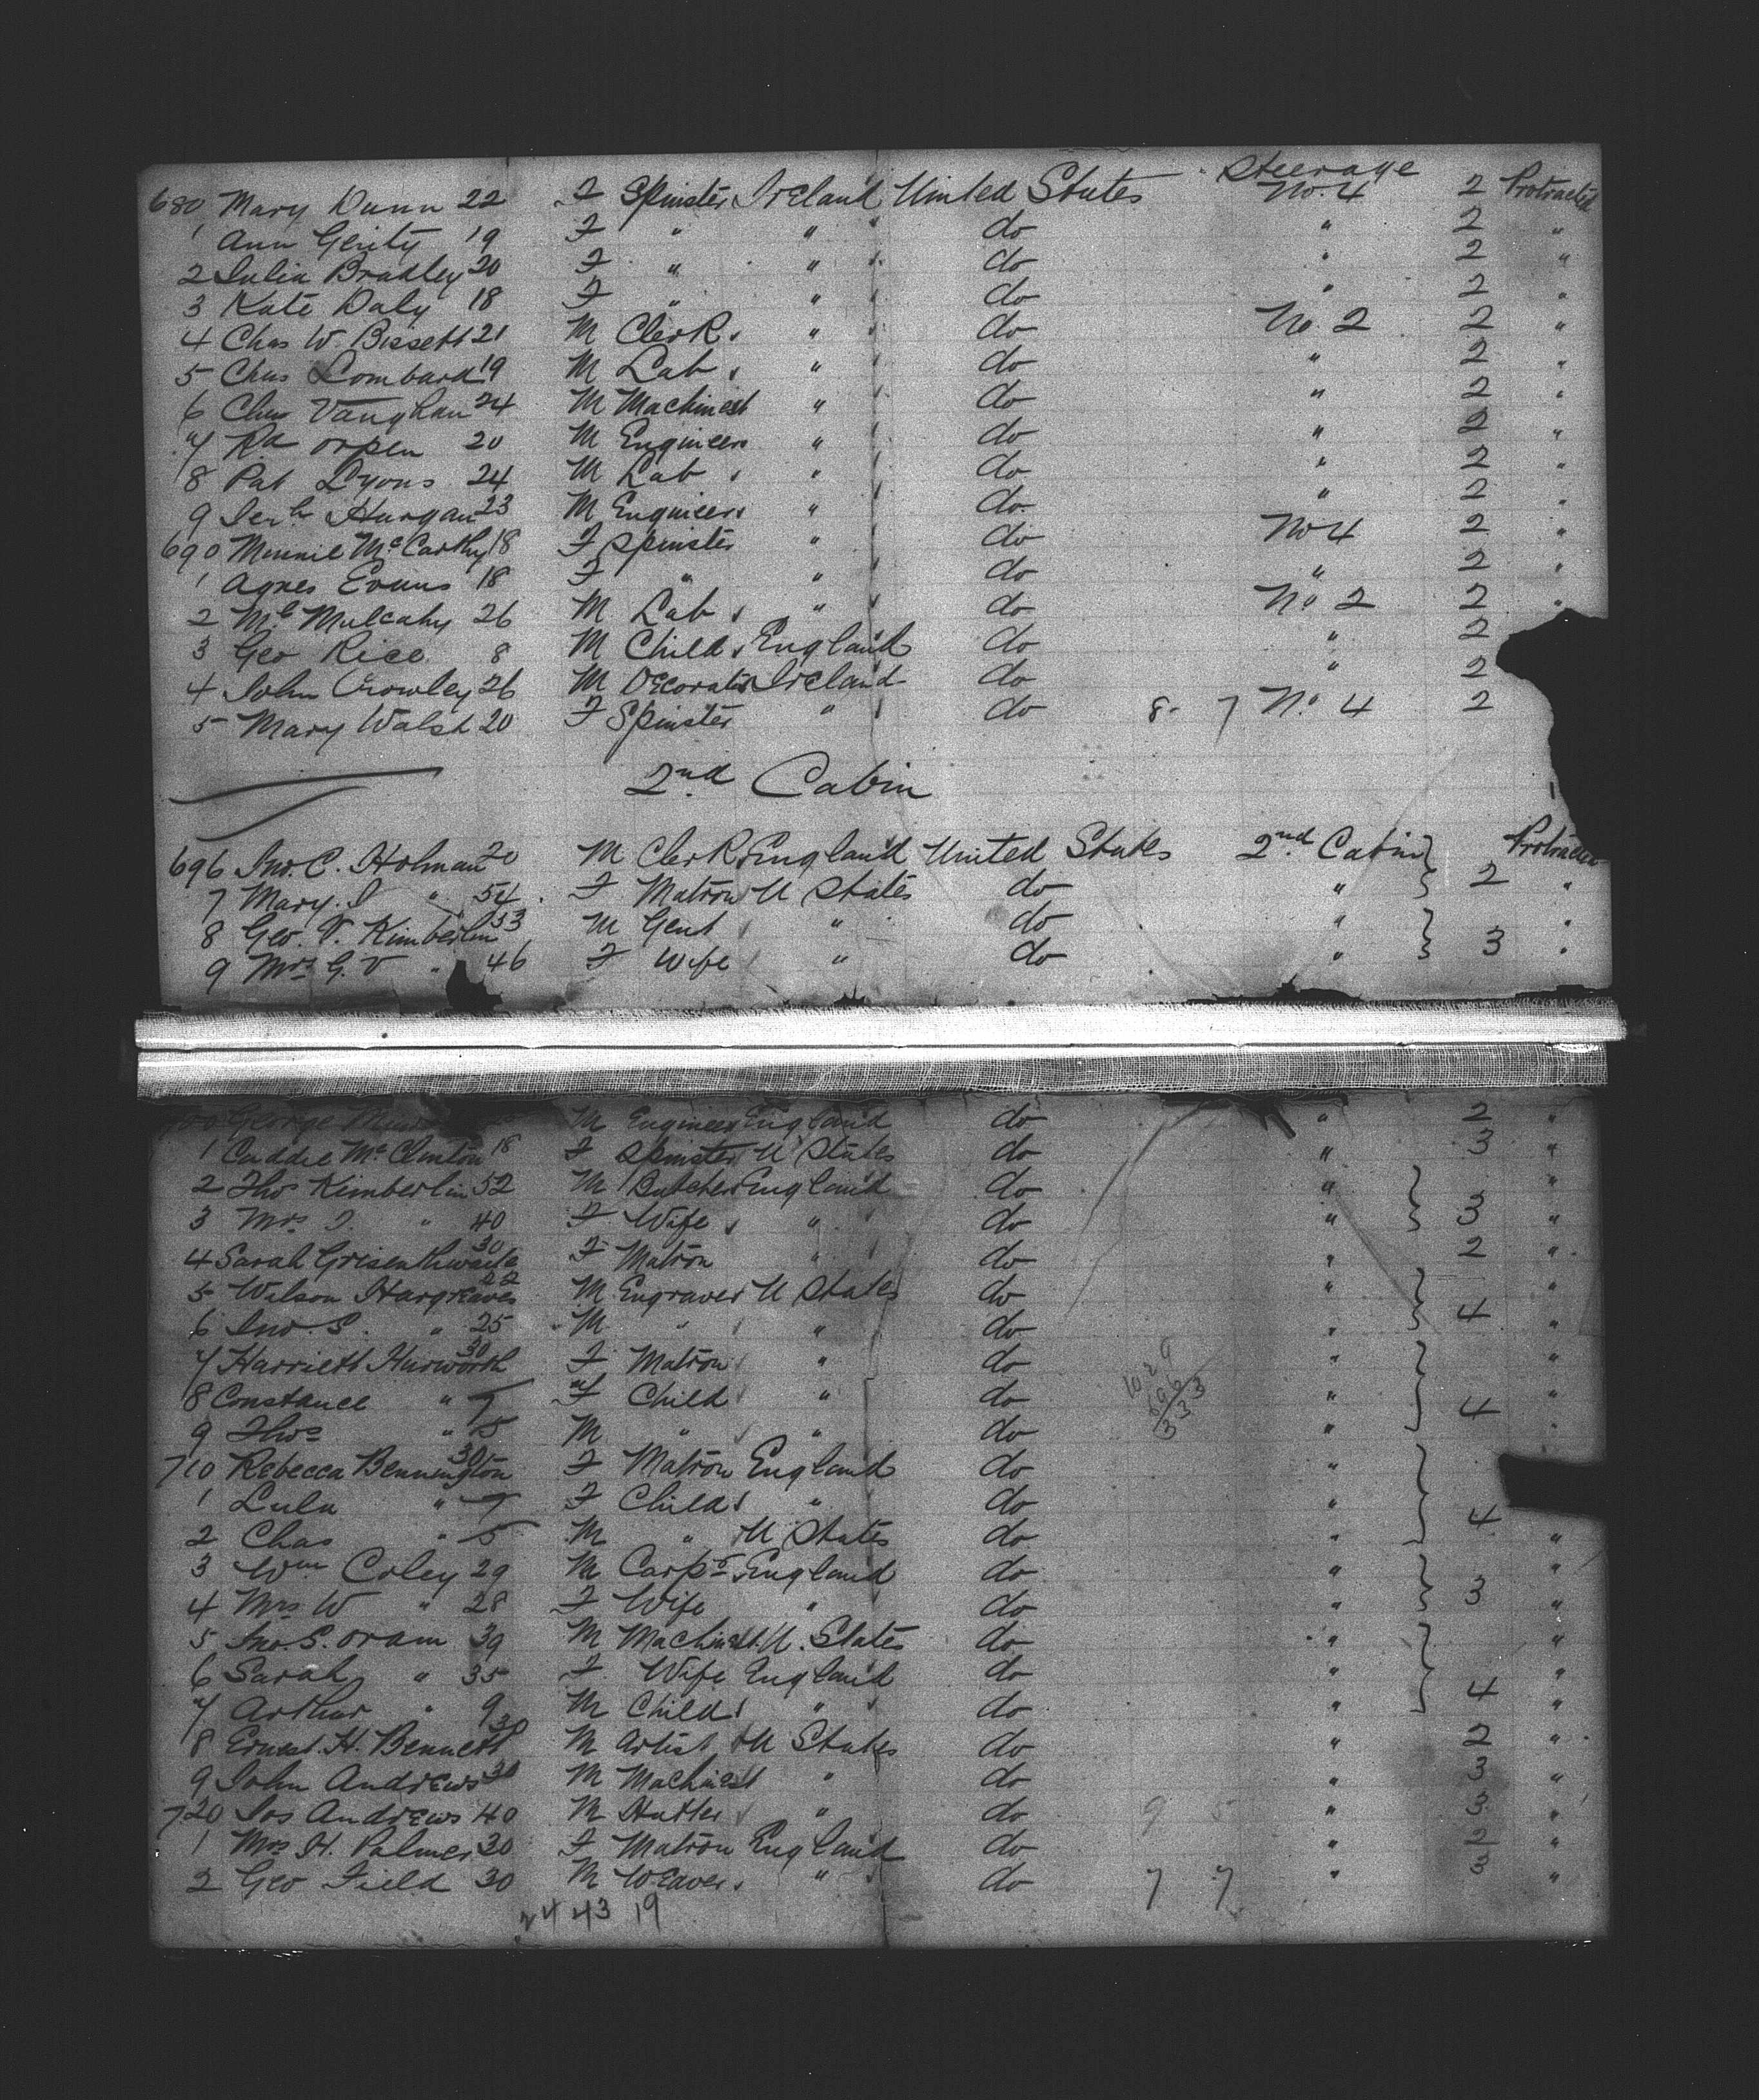 Steerage
680 Mary Dunn 22 F Spinster Ireland United States No. 4 2 Protracted
1 Ann Gerity 19 F " " do " 2 "
2 Julia Bradley 20 F " " do " 2 "
3 Kate Daly 18 F " " do " 2 "
4 Chas W. Bissett 21 M Clerk " do No. 2 2 "
5 Chas Lombard 19 M Lab " do " 2 "
6 Chas Vaughan 24 M Machinest " do " 2 "
7 Rd Orpen 20 M Engineer " do " 2 "
8 Pat Lyons 24 M Lab " do " 2 "
9 Jerh Hurgan 23 M Engineer " do " 2 "
690 Minnie McCarthy 18 F Spinster " do No 4 2 "
1 Agnes Evans 18 F " " do " 2 "
2 Ml Mulcahy 26 M Lab " do No 2 2 "
3 Geo Rice 8 M Child England do " 2
4 John Crowley 26 M Decorator Ireland do " 2
5 Mary Walsh 20 F Spinster " do 8 7 No. 4 2
2nd Cabin
696 Jno. C. Holman 20 M Clerk England United States 2nd Cabin Protracted
7 Mary. J " 54 F Matron U States do " 2 "
8 Geo. V. Kimberlin 53 M Gent " do " "
9 Mrs G. V " 46 F Wife " do " 3 "
700 George M Engineer England do " 2 "
1 Caddie McClinton 18 F Spinster U States do " 3 "
2 Thos Kimberlin 52 M Butcher England do " "
3 Mrs T. " 40 F Wife " do " 3 "
4 Sarah Grisenthwaite 30 F Matron " do " 2 "
5 Walson Hargreaves 22 M Engraver U States do " "
6 Jno. S. " 25 M " " do " 4 "
7 Harriett Hurworth 30 F Matron " do " "
8 Constance " 7 F Child " do " 4 "
9 Thos " 5 M " " do " "
1029
696
333
710 Rebecca Bennington 30 F Matron England do "
1 Lulu " 7 F Child " do " 4
2 Chas " 5 M " U States do " "
3 Wm Coley 29 M Carpr England do " "
4 Mrs W " 28 F Wife " do " 3 "
5 Jno. S. Oram 39 M Machinest U. States do " "
6 Sarah " 35 F Wife England do " "
7 Arthur " 9 M Child " do " 4 "
8 Ernest. H. Bennett 30 M Artist U States do " 2 "
9 John Andrews 30 M Machinest " do " 3 "
720 Jos Andrews 40 M Hatter " do 9 5 " 3 "
1 Mrs H. Palmer 30 F Matron England do " 2 "
2 Geo Field 30 M Weaver " do 7 7 " 3 "
24 43 19